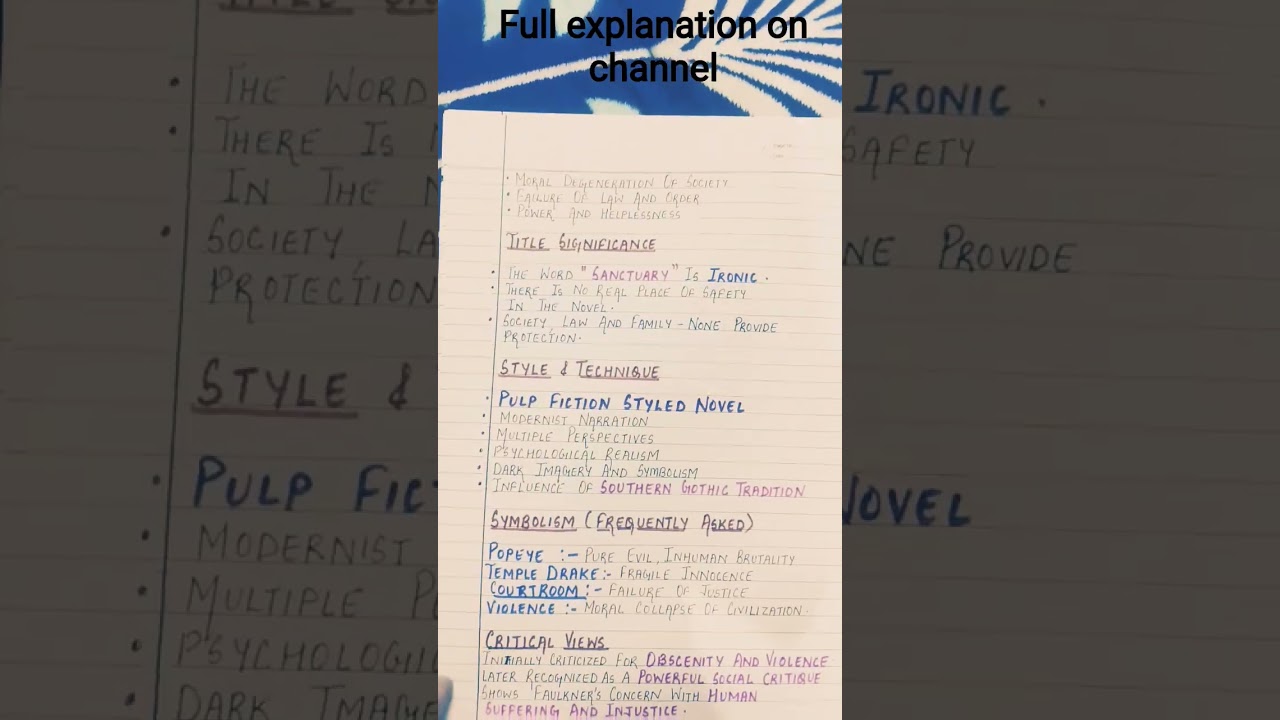 Full explanation on
channel
• MORAL DEGENERATION OF SOCIETY
• FAILURE OF LAW AND ORDER
• POWER AND HELPLESSNESS
TITLE SIGNIFICANCE
• THE WORD "SANCTUARY" IS IRONIC.
• THERE IS NO REAL PLACE OF SAFETY
IN THE NOVEL.
• SOCIETY, LAW AND FAMILY - NONE PROVIDE
PROTECTION.
STYLE & TECHNIQUE
• PULP FICTION STYLED NOVEL
• MODERNIST NARRATION
• MULTIPLE PERSPECTIVES
• PSYCHOLOGICAL REALISM
• DARK IMAGERY AND SYMBOLISM
• INFLUENCE OF SOUTHERN GOTHIC TRADITION
SYMBOLISM (FREQUENTLY ASKED)
POPEYE :- PURE EVIL, INHUMAN BRUTALITY
TEMPLE DRAKE:- FRAGILE INNOCENCE
COURTROOM :- FAILURE OF JUSTICE
VIOLENCE :- MORAL COLLAPSE OF CIVILIZATION.
CRITICAL VIEWS
INITIALLY CRITICIZED FOR OBSCENITY AND VIOLENCE
LATER RECOGNIZED AS A POWERFUL SOCIAL CRITIQUE
SHOWS FAULKNER'S CONCERN WITH HUMAN
SUFFERING AND INJUSTICE.